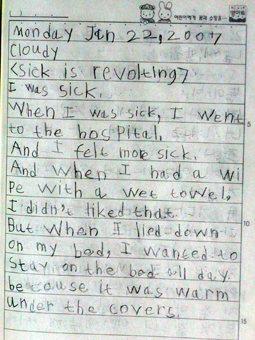 Monday Jan 22, 2007
Cloudy
<Sick is revolting>
I was sick.
When I was sick, I went
to the hospital.
And I felt more sick.
And when I had a wi
pe with a wet towel,
I didn't liked that.
But when I lied down
on my bed, I wanted to
stay on the bed all day
because it was warm
under the covers.
5
10
15